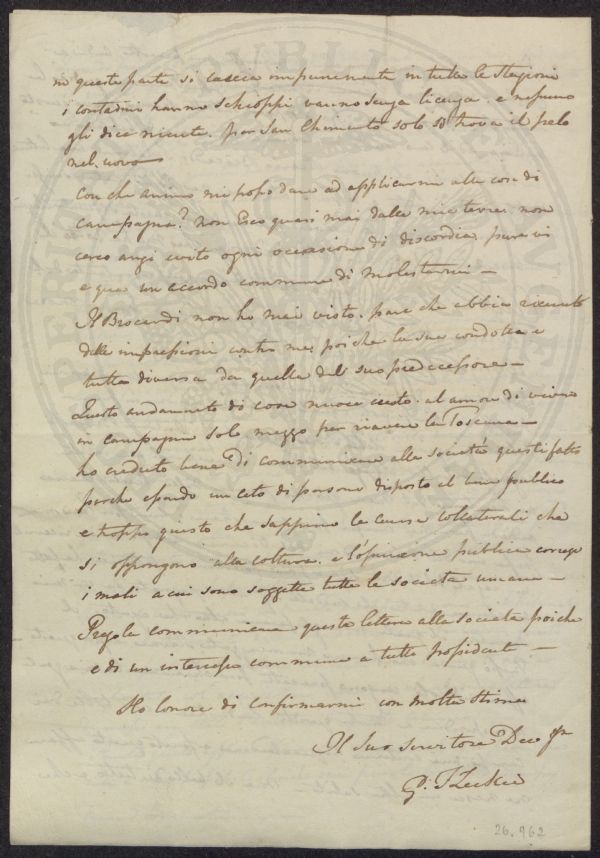 in queste parti si caccia impunemente in tutte le stagioni
i contadini hanno schioppi vanno senza licenza. e nessuno
gli dice niente. per San Chimento solo si trova il pelo
nel'uovo—
Con che animo mi posso dare ad applicarmi alle cose di
campagna? non esco quasi mai dalle mie terre. non
cerco anzi evito ogni occasione di discordia. pure vi
e qua un accordo commune di molestarmi—
Il Brocardi non ho mai visto. pare che abbia ricevuto
delle impressioni contro me, poiche la sua condotta e
tutta diversa da quella del suo predecessore—
Questo andamento di cose nuoce al amore di vivere
in campagna solo mezzo per riavere la Toscana—
ho creduto bene di communicare alla società questi fatti
perche essendo un ceto di persone disposto al bene publico
e troppo giusto che sappino le cause collaterali che
si oppongono alla coltura. e l'opinione publica corregge
i mali a cui sono soggette tutte le società umane—
Pregola communicare questa lettera alla società poiche
e di un interesse commune a tutti possidenti—
Ho l'onore di confirmarmi con molta stima
Il Suo servitore Devo
G.
26.962